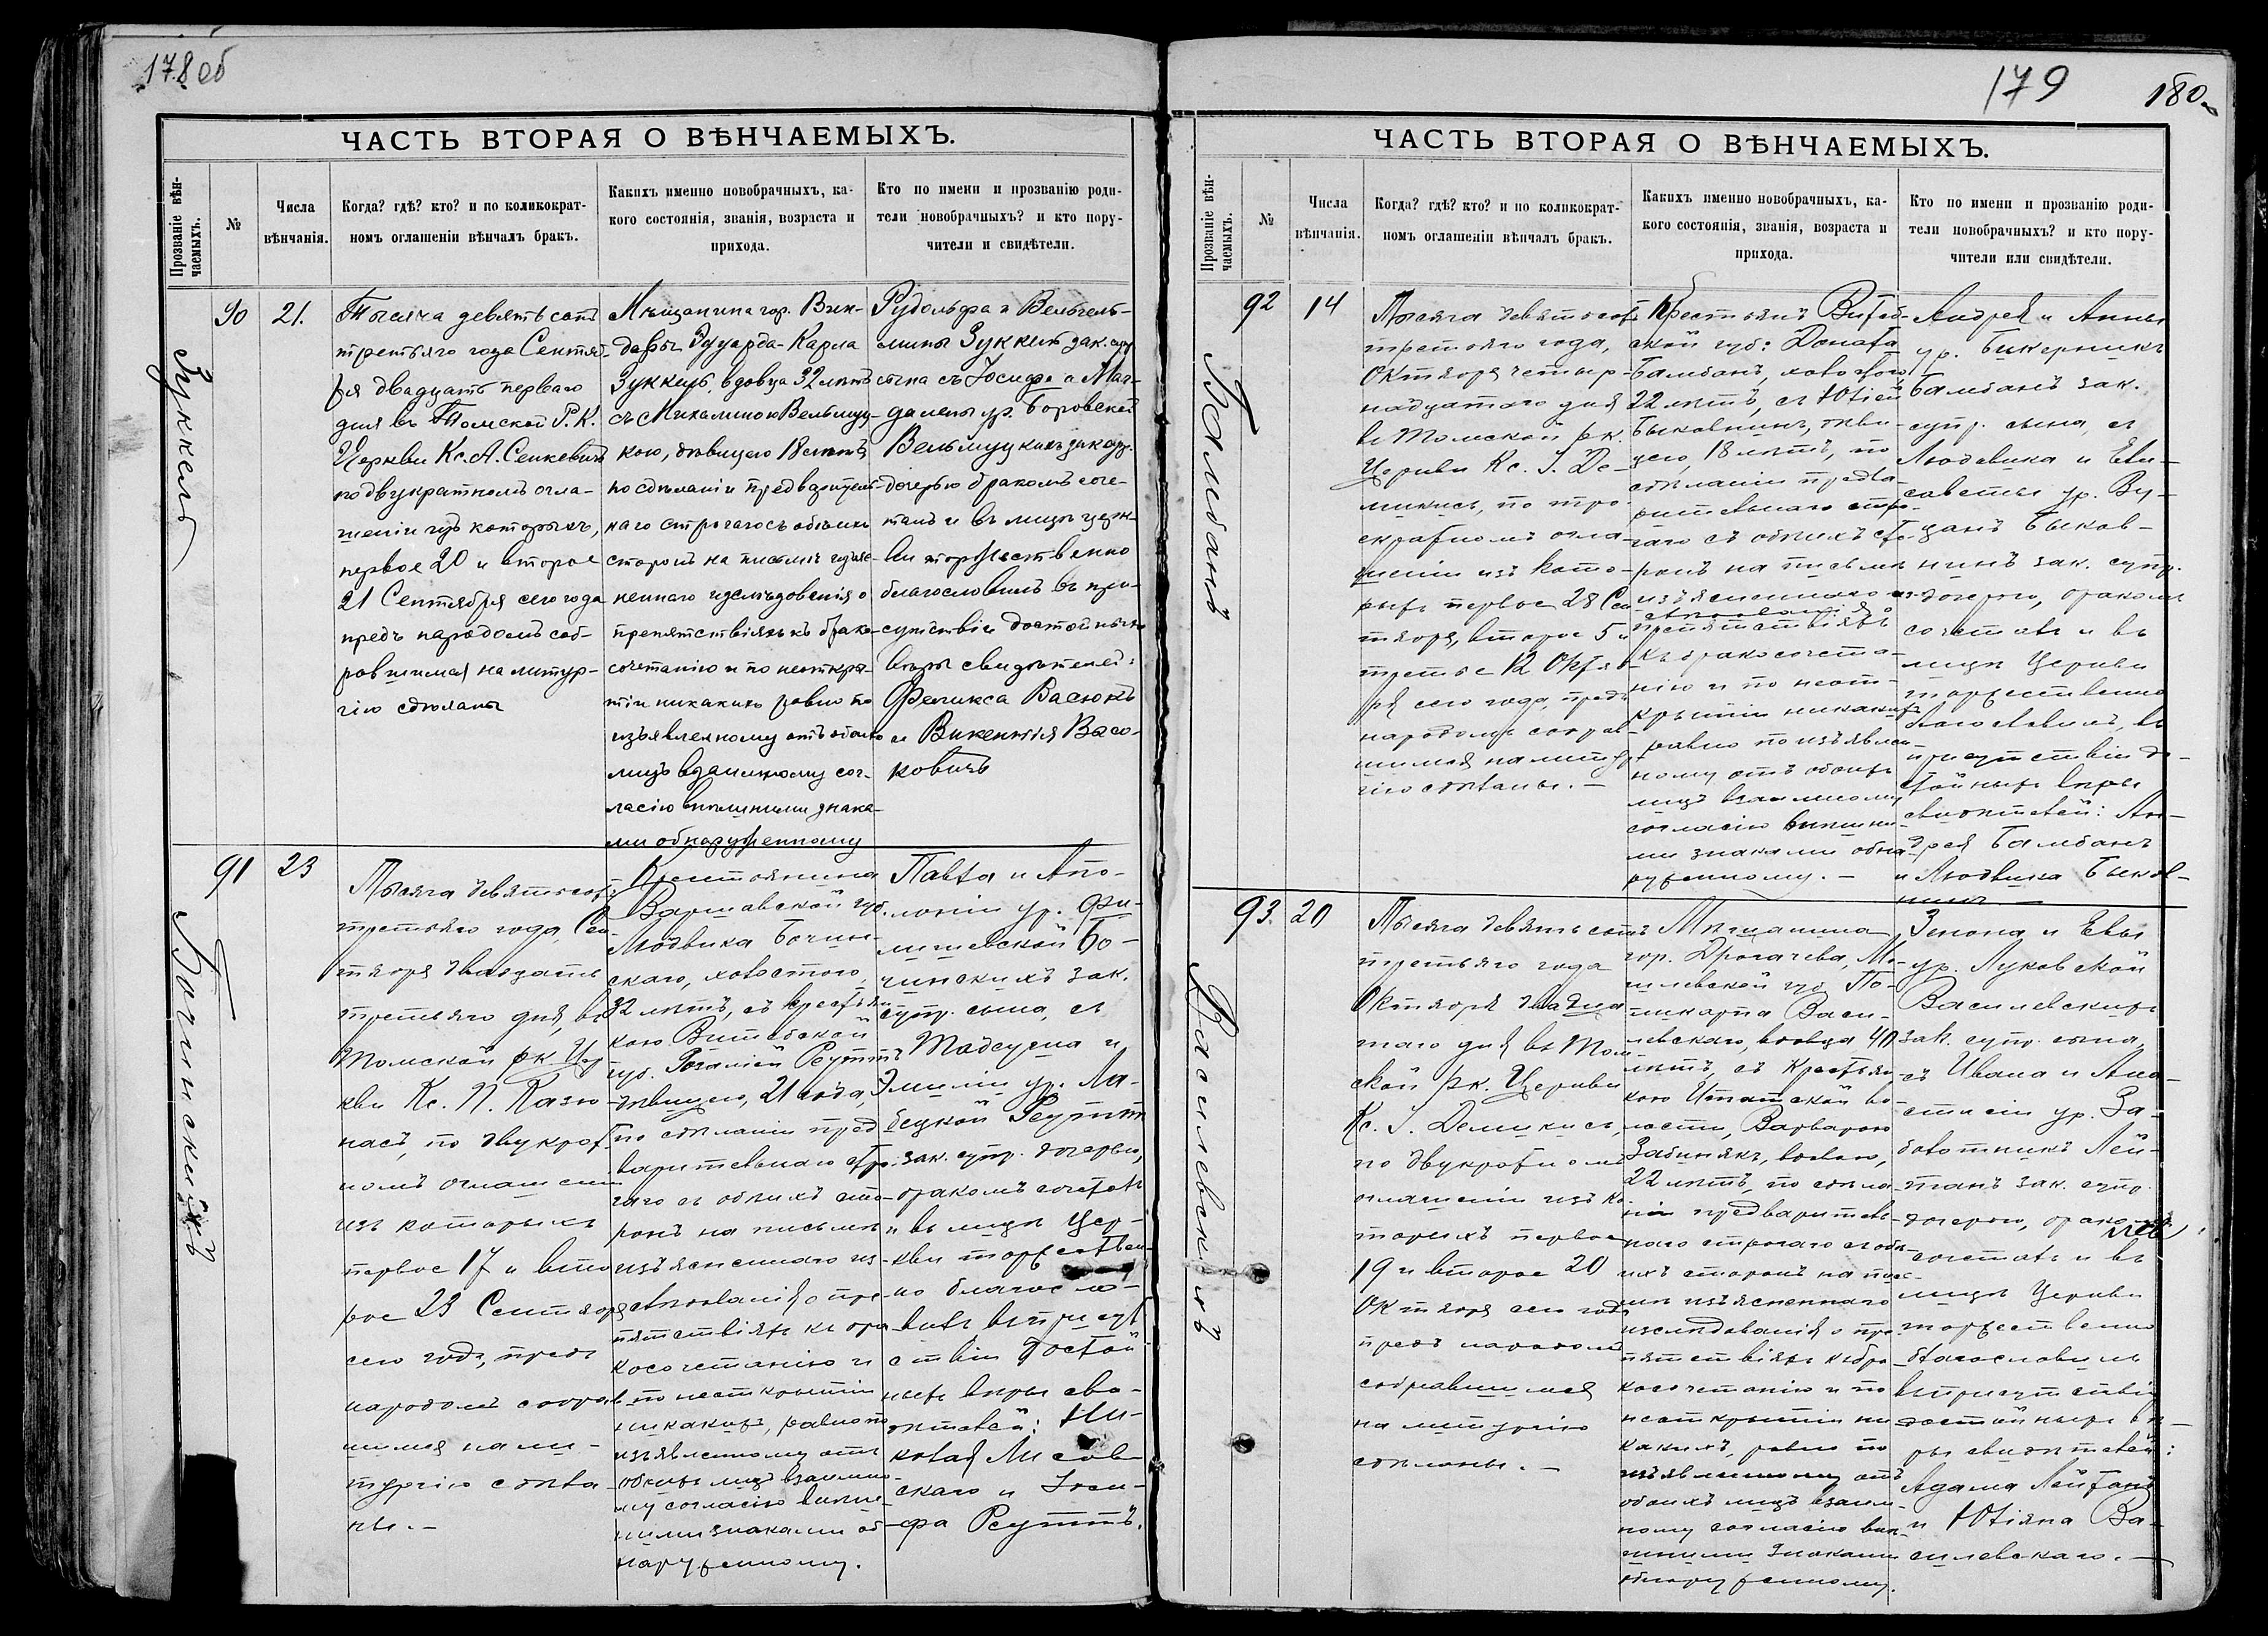 178 об
ЧАСТЬ ВТОРАЯ О ВѢНЧАЕМЫХЪ.
Прозваніе вѣн-
чаемыхъ.
№
Числа
вѣнчанія.
Когда? гдѣ? кто? и по коликократ-
номъ оглашеніи вѣнчалъ бракъ.
Какихъ именно новобрачныхъ, ка-
кого состоянія, званія, возраста и
прихода.
Кто по имени и прозванію роди-
тели новобрачныхъ? и кто пору-
чители и свидѣтели.
Зуккель
90
21.
Тысяча девятьсотъ
третьяго года Сентяб-
ря двадцать перваго
дня въ Томской Р.К.
Церкви Кс. А. Сенкевичъ
по двукратномъ огла-
шеніи изъ которыхъ,
первое 20 и второе
21 Сентября сего года
предъ народомъ соб-
равшимся на литур-
гію сдѣланы
Мѣщанина гор. Вин-
давы Эдуарда-Карла
Зуккель, вдовца 32 лѣтъ
съ Михалиною Вельмуц-
кою, дѣвицею 18 лѣтъ,
по сдѣланіи предварител-
наго строгаго съ обѣихъ
сторонъ на письмѣ изъяс-
неннаго изслѣдованія о
препятствіяхъ къ брако-
сочетанію и по неоткры-
тіи никакихъ равно по
изъявленному отъ обоихъ
лицъ взаимному сог-
ласію внѣшними знака-
ми обнаруженному
Рудольфа и Вельгель-
мины Зуккель зак. супр.
сына съ Іосифа и Маг-
далены ур. Боровской
Вельмуцкихъ зак. супр.
дочерью бракомъ соче-
талъ и въ лицѣ церк-
ви торжественно
благословилъ въ при-
сутствіи достойныхъ
вѣры свидѣтелей:
Феликса Васюкъ
и Викентія Васо-
ковичъ
Бочинскихъ
91
23
Тысяча девятьсотъ
третьяго года, Сен-
тября двадцать
третьяго дня, въ
Томской р.к. Цер
кви Кс. П. Казю
насъ, по двукрат
номъ оглашеніи
изъ которыхъ
первое 17 и вто
рое 23 Сентября
сего года, предъ
народомъ собрав
шимся на ли-
тургію сдѣла-
ны. —
Крестьянина
Варшавской губ.
Людвика Бочин-
скаго, холостого,
32 лѣтъ, съ крестьян
кою Витебской
губ. Розаліей Реуттъ
дѣвицею, 21 года,
по сдѣланіи пред
варительнаго стро
гаго съ обѣихъ сто-
ронъ на письмѣ
изъясненнаго из-
слѣдованія о пре
пятствіяхъ къ бра
косочетанію и
по неоткрытіи
никакихъ, равно по
изъявленному отъ
обоихъ лицъ взаимно-
му согласію внѣш-
ними знаками об
наруженному.
Павла и Апо-
лоніи ур. Фи-
лишевской Бо-
чинскихъ зак.
супр. сына, съ
Тадеуша и
Эмиліи ур. Ла-
бецкой Реуттъ
зак. супр. дочерью,
бракомъ сочеталъ
и въ лицѣ Цер-
кви торжествен-
но благосло-
вилъ въ присут
ствіи достой-
ныхъ вѣры сви-
дѣтелей: Ни-
колая Лисов-
скаго и Іоси-
фа Реуттъ.
179
180
ЧАСТЬ ВТОРАЯ О ВѢНЧАЕМЫХЪ.
Прозваніе вѣн-
чаемыхъ.
№
Числа
вѣнчанія.
Когда? гдѣ? кто? и по коликократ-
номъ оглашеніи вѣнчалъ бракъ.
Какихъ именно новобрачныхъ, ка-
кого состоянія, званія, возраста и
прихода.
Кто по имени и прозванію роди-
тели новобрачныхъ? и кто пору-
чители или свидѣтели.
Бамбанъ
92
14
Тысяча девятьсотъ
третьяго года,
Октября четыр-
надцатаго дня
въ Томской р.к.
Церкви Кс. І. Де-
микисъ, по тро-
екратномъ огла-
шеніи изъ кото-
рыхъ первое 28 Сен
тября, второе 5 и
третье 12 Октяб
ря сего года, предъ
народомъ собрав
шимся на литур
гію сдѣланы. —
Крестьянъ Витеб-
ской губ: Доната
Бамбанъ, холостого
22 лѣтъ, съ Юліей
Быковнинъ, дѣви-
цею, 18 лѣтъ, по
сдѣланіи предва-
рительнаго стро-
гаго съ обѣихъ сто-
ронъ на письмѣ
изъясненнаго из-
слѣдованія о
препятствіяхъ
къ бракосочета-
нію и по неот-
крытіи никакихъ
равно по изъявлен-
ному отъ обоихъ
лицъ взаимному
согласію внѣшни-
ми знаками обна-
руженному. —
Андрея и Анны
ур. Бикерникъ
Бамбанъ зак.
супр. сына, съ
Людвика и Ели-
саветы ур. Ву-
цанъ Быков-
нинъ зак. супр.
дочерью, бракомъ
сочеталъ и въ
лицѣ Церкви
торжественно
благословилъ, въ
присутствіи до-
стойныхъ вѣры
свидѣтелей: Ан-
дрея Бамбанъ
и Людвика Быков-
нинъ —
Василевскихъ
93.
20
Тысяча девятьсотъ
третьяго года
Октября двадца
таго дня въ Том
ской р.к. Церкви
Кс. І. Демикисъ,
по двукратномъ
оглашеніи изъ ко
торыхъ первое
19 и второе 20
Октября сего года
предъ народомъ
собравшимся
на литургію
сдѣланы. —
Мѣщанина
гор. Дрогачева, Мо-
гилевской губ По-
ликарпа Васи-
левскаго, вдовца 40
лѣтъ, съ Крестьян
кою Ишатской во
лости, Варварою
Забинякъ, вдовою,
22 лѣтъ, по сдѣла
ніи предварител-
наго строгаго съ обѣ-
ихъ сторонъ на пись-
мѣ изъясненнаго
изслѣдованія о пре
пятствіяхъ къ бра
косочетанію и по
неоткрытіи ни
какихъ, равно по
изъявленному отъ
обоихъ лицъ взаим-
ному согласію внѣ-
шними знаками
обнаруженному.
Зенона и Евы
ур. Луковской
Василевскихъ
зак. супр. сына,
съ Ивана и Ана-
стасіи ур. За-
болотникъ Лей-
танъ зак. супр.
дочерью, бракомъ
сочеталъ и въ
лицѣ Церкви
торжественно
благословилъ
въ присутствіи
достойныхъ вѣ-
ры свидѣтелей:
Адама Лейтанъ
и Юліяна Ва-
силевскаго. —